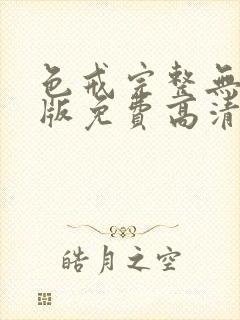 色戒完整無
版免費高清
皓月之空